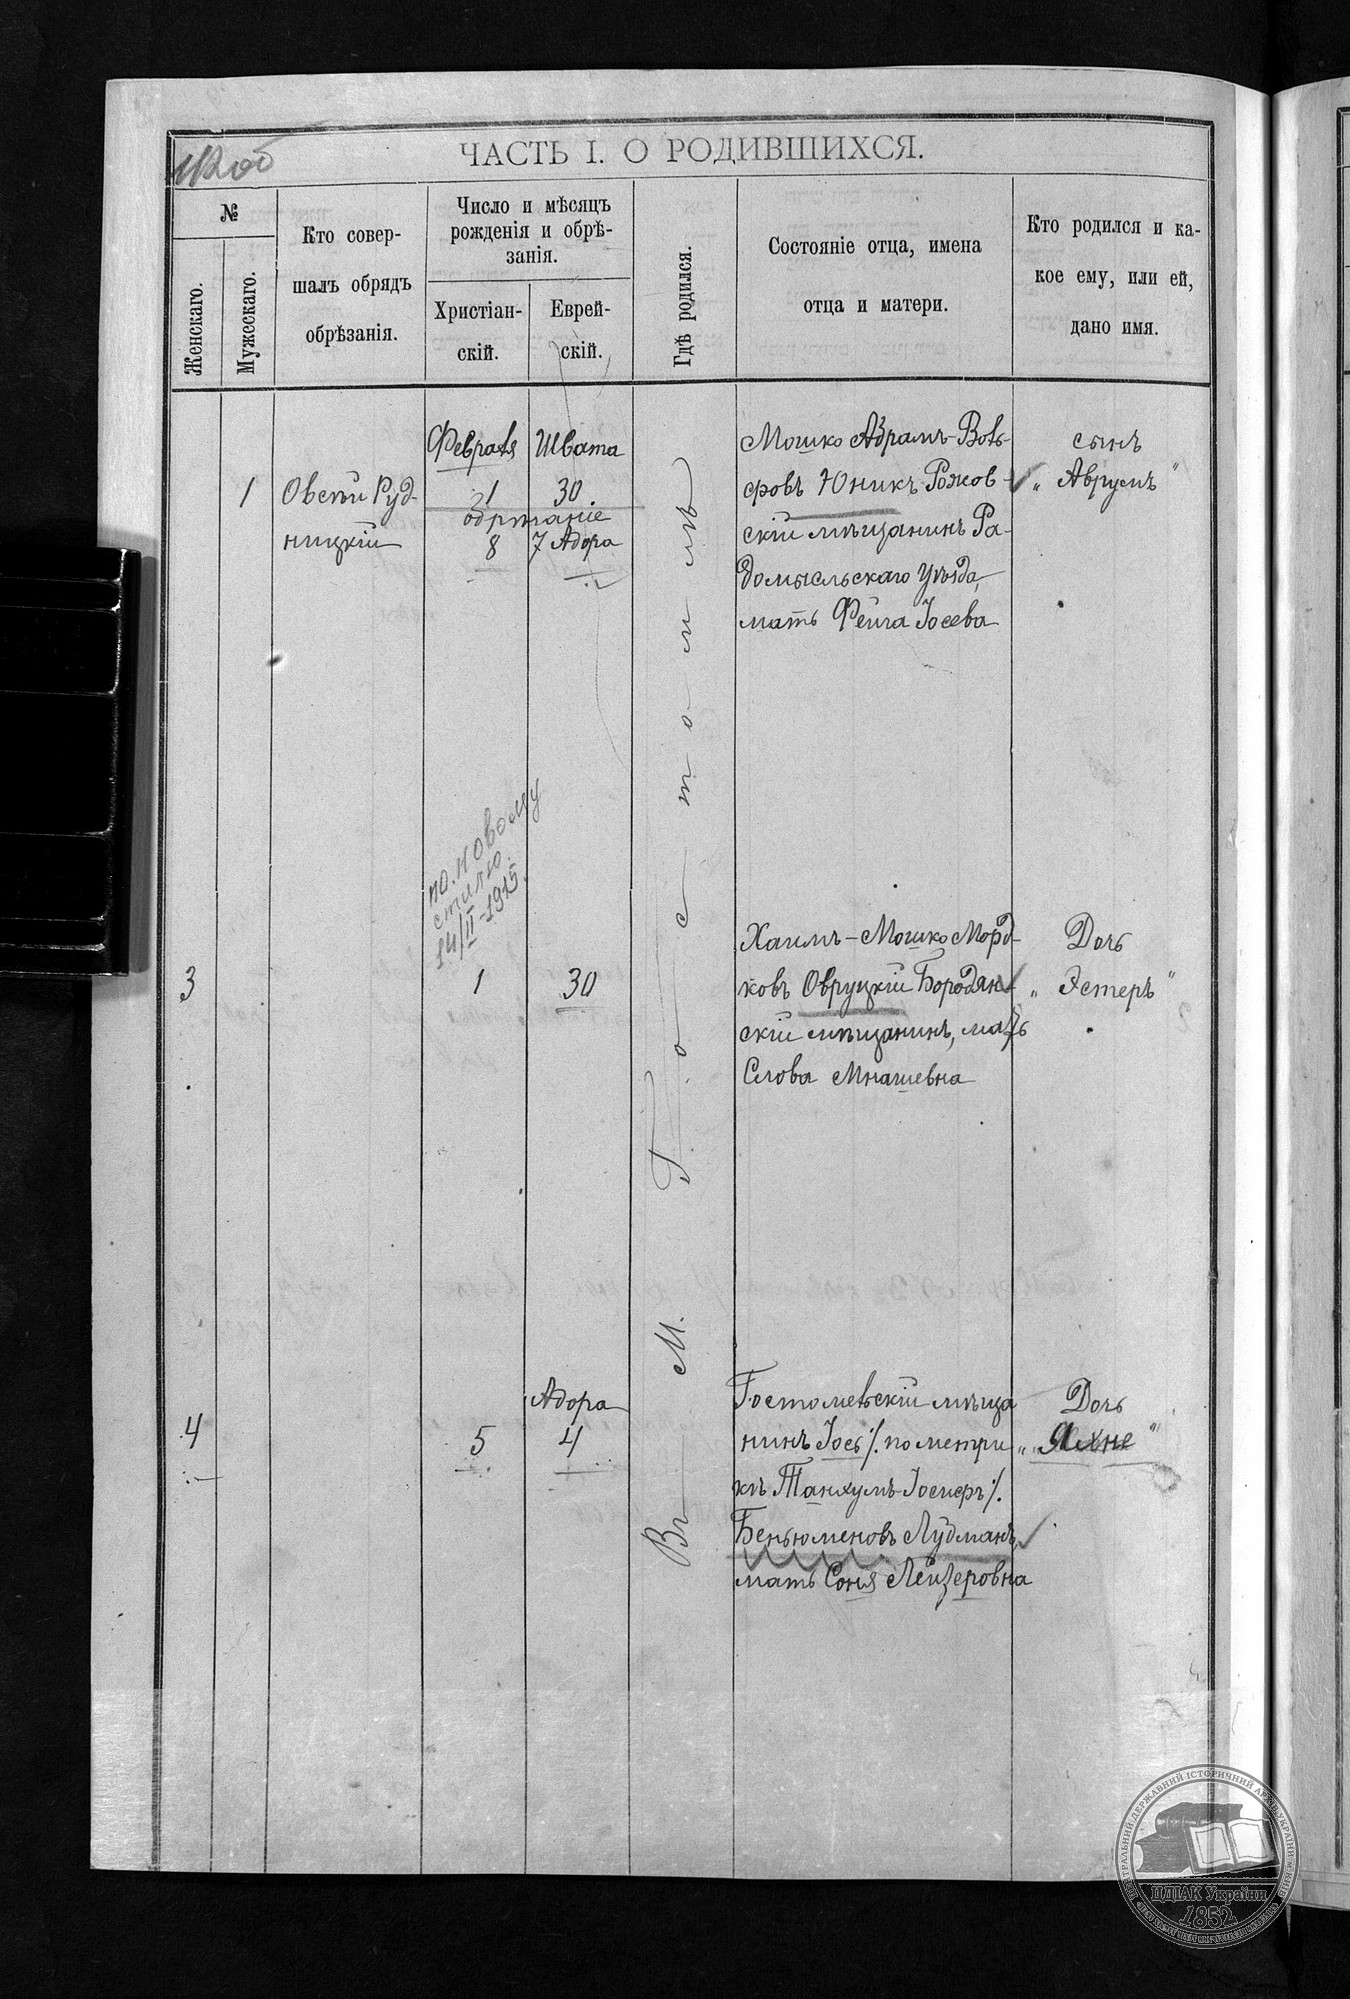 ЧАСТЬ I. О РОДИВШИХСЯ.
№
Женскаго.
Мужескаго.
Кто совер-
шалъ обрядъ
обрѣзанія.
Число и мѣсяцъ
рожденія и обрѣ-
занія.
Христіан-
скій.
Еврей-
скій.
Гдѣ родился.
Состояніе отца, имена
отца и матери.
Кто родился и ка-
кое ему, или ей,
дано имя.
1
Овсѣй Руд-
ницкій
Февраля
1
обрѣзаніе
8
Швата
30
7 Адора
Въ М. Гостомлѣ
Мошко Абрамъ-Воль-
фовъ Юникъ Рожов-
скій мѣщанинъ Ра-
домысльскаго уѣзда,
мать Фейга Іосева
сынъ
„Аврумъ"
по новому
стилю
14/II-1915.
3
1
30
Хаимъ-Мошко Морд-
ковъ Овруцкій Бородян-
скій мѣщанинъ, мать
Слова Мнашевна
Дочь
„Эстеръ"
4
5
Адора
4
Гостомельскій мѣща
нинъ Іось /. по метри
кѣ Танхумъ-Іосифъ /.
Беньюменовъ Лудманъ,
мать Соня Лейзеровна
Дочь
„Яхне"
ЦЕНТРАЛЬНИЙ ДЕРЖАВНИЙ ІСТОРИЧНИЙ АРХІВ УКРАЇНИ, КИЇВ
ЦДІАК України
1852